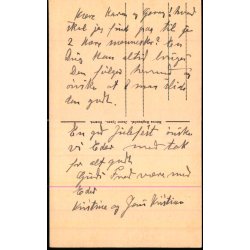 Kære Karen og Georg's hvad
skal jeg finde paa til jer
2 kære mennesker? En
Dug kan altid bruges
Den følger herved og
ønske at I maa slide
den godt.
En god Julefest ønske
vi Eder med tak
for alt godt
Guds Fred være med
Eder
Kristine og Jens Kristian